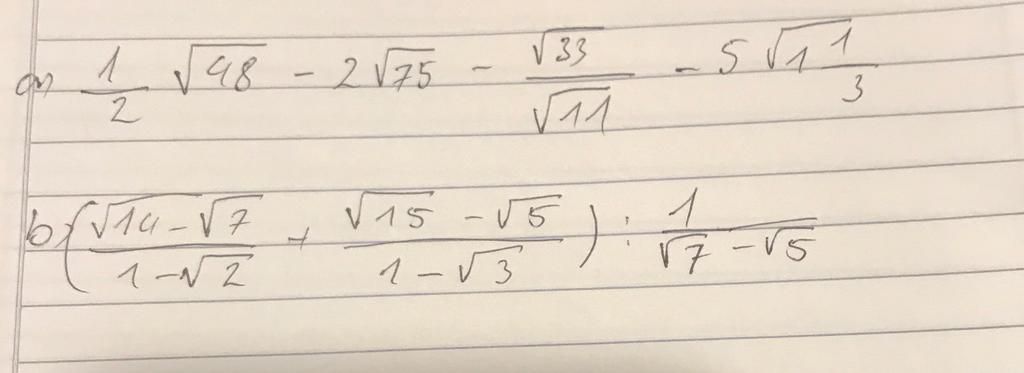 a) 1/2 √48 - 2√75 - √33/√11 - 5√1 1/3
b) (√14-√7/1-√2 + √15-√5/1-√3) : 1/√7-√5